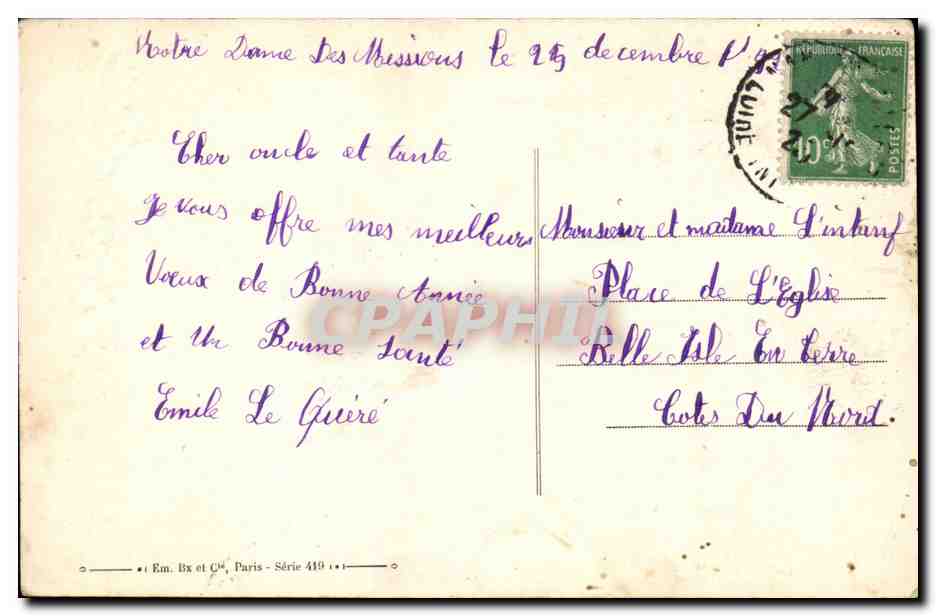 Notre Dame Des Missions le decembre
REPUBLIQUE FRANÇAISE
10c
POSTES
GUINÉ
27
Cher oncle et tante
Je vous offre mes meilleurs
Voeux de Bonne Année
et Un Bonne Santé
Emile Le Quéré
Monsieur et madame L'intanf
Place de L'Eglise
Belle Isle En Terre
Cotes Du Nord
CPAPHIL
Em. Bx et Cie, Paris - Série 419